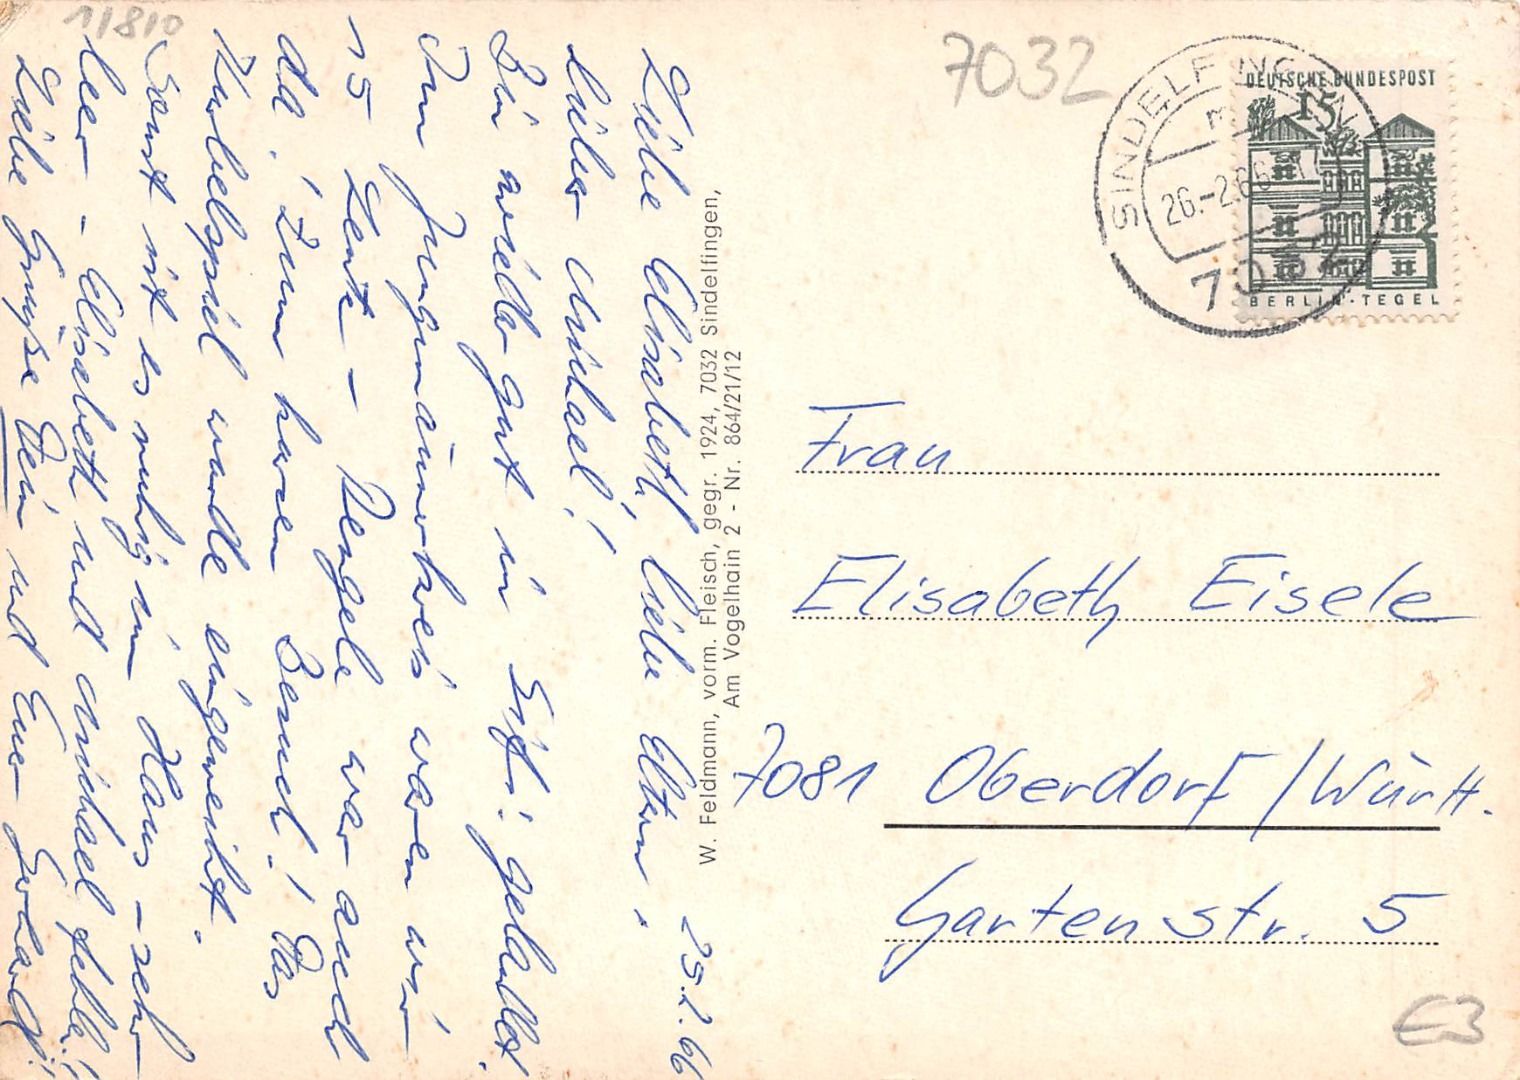 11810
25.2.66
Liebe Elisabeth, liebe Eltern,
lieber Michael!
Bin wieder gut in Sifi. gelandet.
Im Jungmännerkreis waren wir
15 Leute – Dengele war auch
da! Zum kurzen Besuch! Das
Kurbelspiel wurde eingeweiht.
Sonst ist es ruhig im Haus – sehr
leer – Elisabeth und Michael fehlen!!
Liebe Grüsse Dein und Euer Gerhard!!
W. Feldmann, vorm. Fleisch, gegr. 1924, 7032 Sindelfingen,
Am Vogelhain 2 - Nr. 864/21/12
7032
DEUTSCHE BUNDESPOST
15
BERLIN-TEGEL
SINDELFINGEN
26.-2.66
7032
Frau
Elisabeth Eisele
7081 Oberdorf/Württ.
Gartenstr. 5
€3